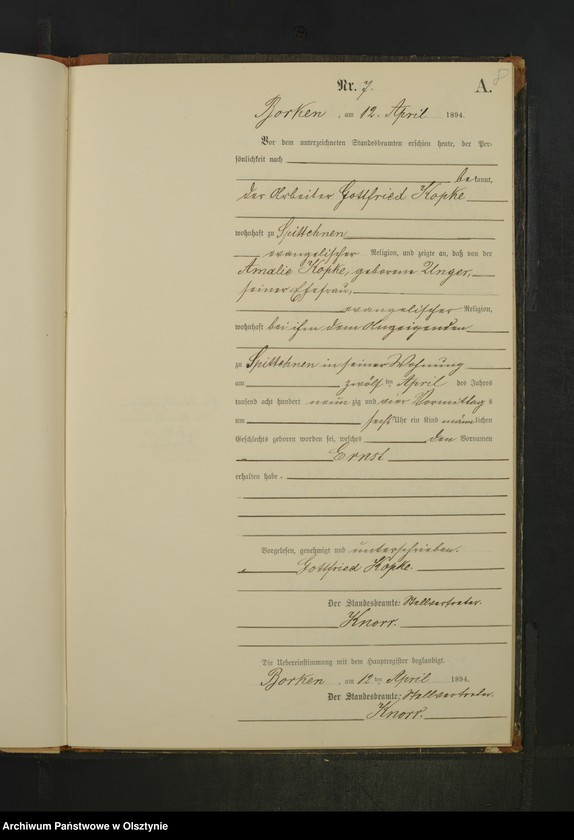 8
Nr. 7. A.
Borken, am 12. April 1894.
Vor dem unterzeichneten Standesbeamten erschien heute, der Per-
sönlichkeit nach
bekannt,
der Arbeiter Gottfried Kopke
wohnhaft zu Spittehnen
evangelischer Religion, und zeigte an, daß von der
Amalie Kopke, geborene Unger,
seiner Ehefrau,
evangelischer Religion,
wohnhaft bei ihm dem Anzeigenden
zu Spittehnen in seiner Wohnung
am zwölften April des Jahres
tausend acht hundert neunzig und vier Vormittags
um sechs Uhr ein Kind männlichen
Geschlechts geboren worden sei, welches den Vornamen
Ernst
erhalten habe.
Vorgelesen, genehmigt und unterschrieben.
Gottfried Kopke.
Der Standesbeamte: Stellvertreter.
Knorr.
Die Uebereinstimmung mit dem Hauptregister beglaubigt.
Borken, am 12ten April 1894.
Der Standesbeamte: Stellvertreter.
Knorr.
Archiwum Państwowe w Olsztynie